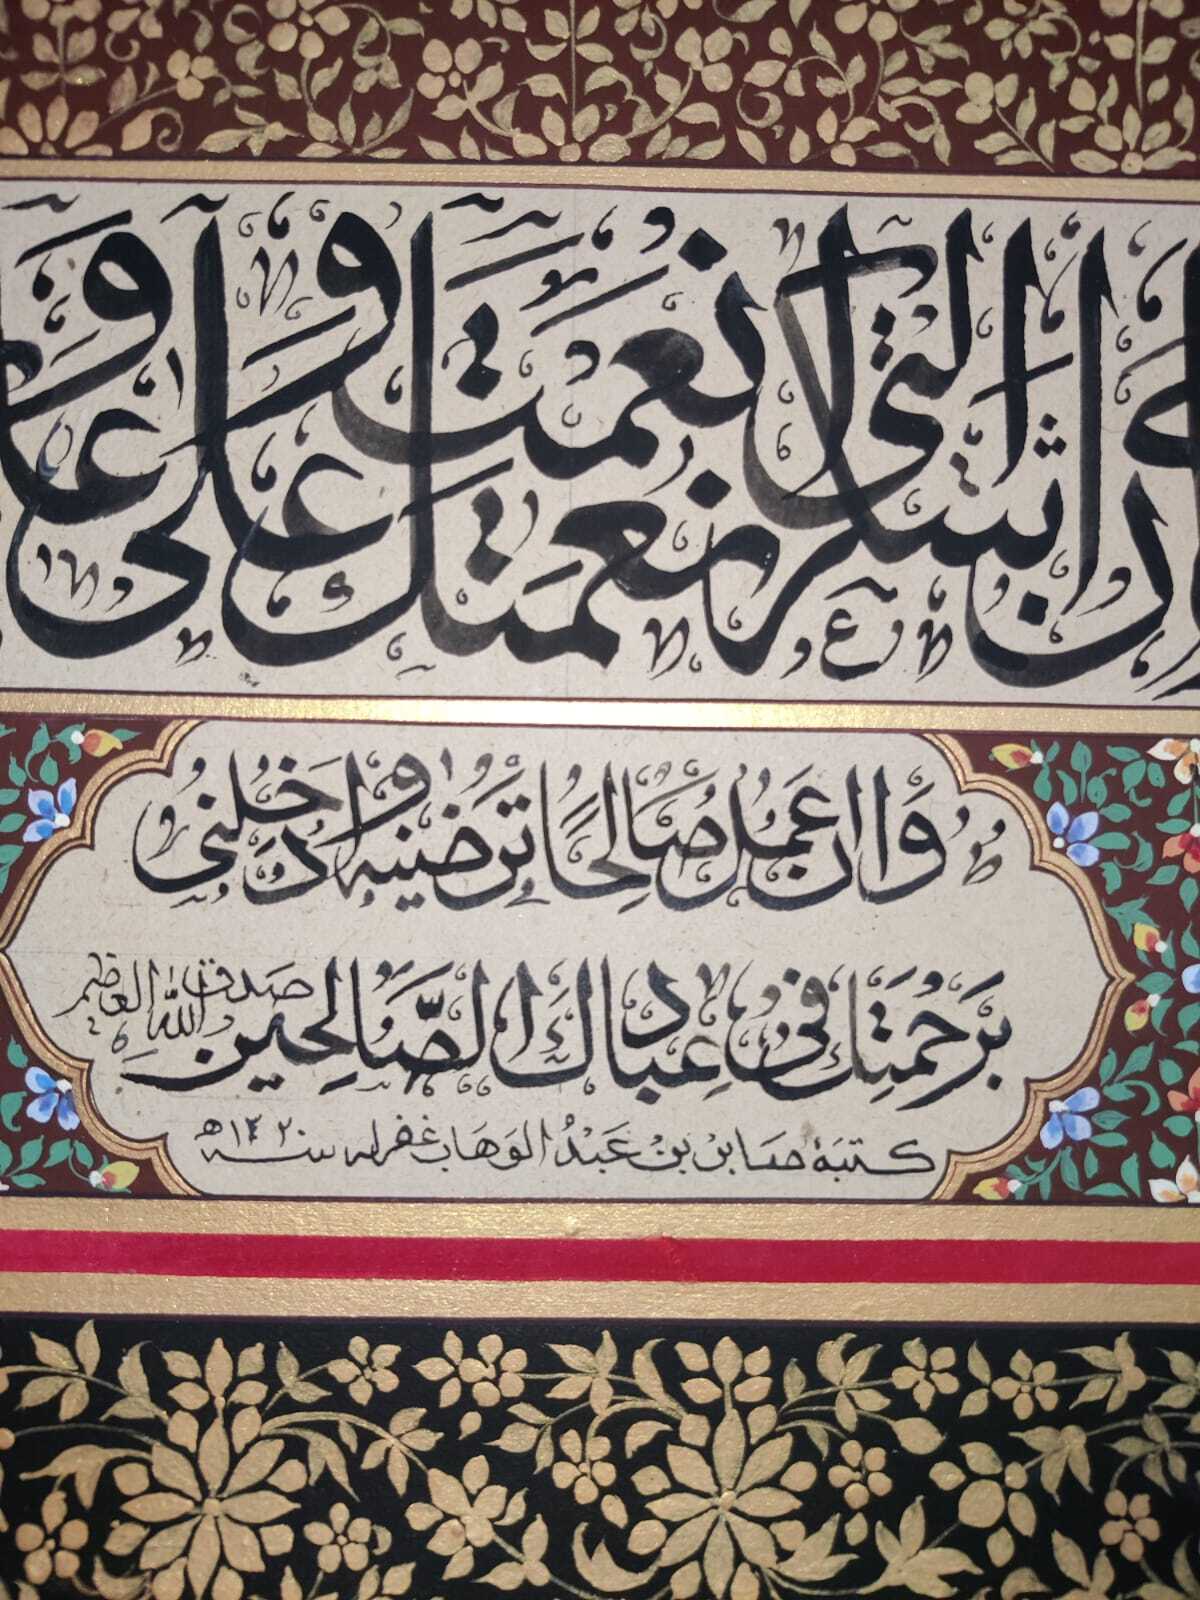 ان اشكر نعمتك التى انعمت على وعلى
وَاَن اعمل صالحًا ترضيه وادخلنى
برحمتك فى عبادك الصّالحين صدق الله العظيم
كتبه صابر بن عبد الوهاب غفر له سنه ١٤٢٠ھ